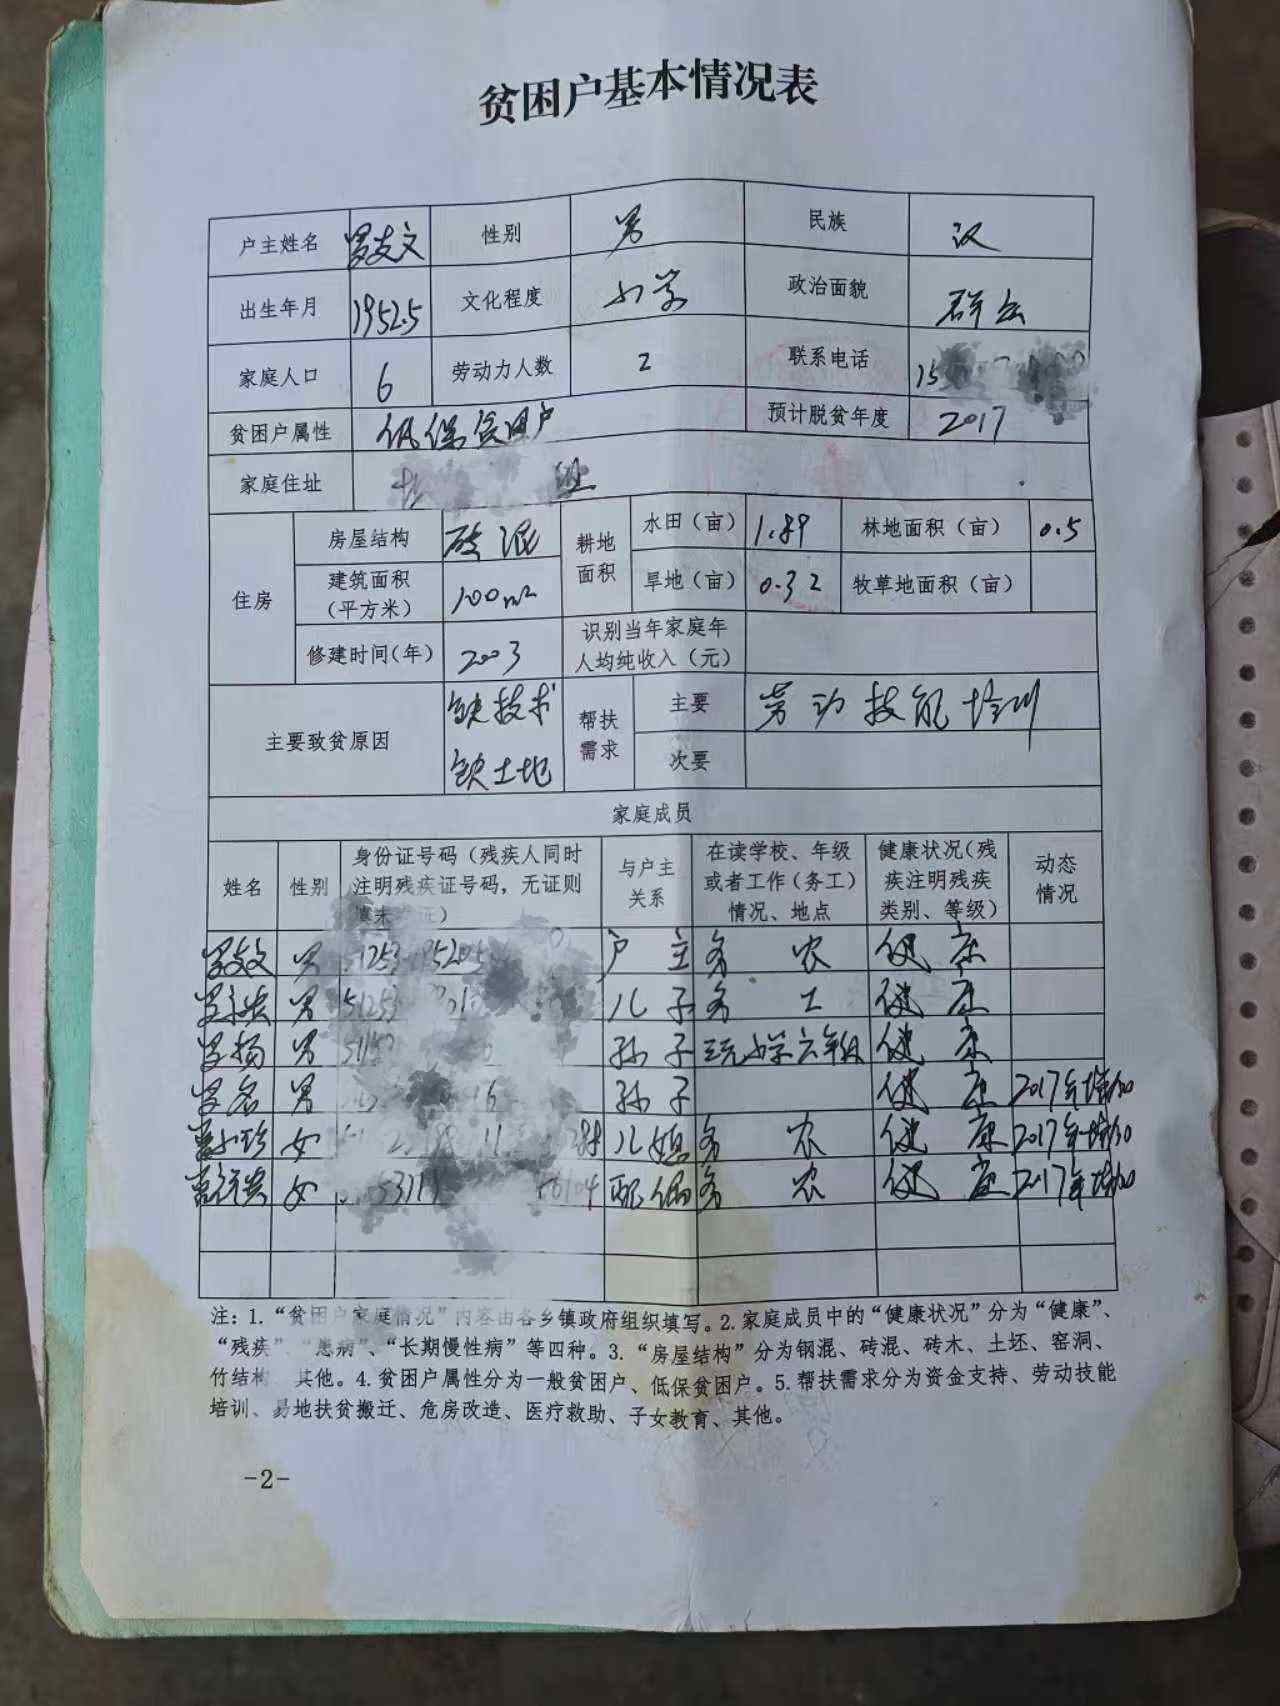 贫困户基本情况表
户主姓名 罗支文 性别 男 民族 汉
出生年月 1952.5 文化程度 小学 政治面貌 群众
家庭人口 6 劳动力人数 2 联系电话 15
贫困户属性 低保贫困户 预计脱贫年度 2017
家庭住址 组
住房 房屋结构 砖混 耕地面积 水田（亩） 1.89 林地面积（亩） 0.5
建筑面积（平方米） 100m² 旱地（亩） 0.32 牧草地面积（亩）
修建时间(年) 2003 识别当年家庭年人均纯收入（元）
主要致贫原因 缺技术 缺土地 帮扶需求 主要 劳动技能培训
次要
家庭成员
姓名 性别 身份证号码（残疾人同时注明残疾证号码，无证则 与户主关系 在读学校、年级或者工作（务工）情况、地点 健康状况(残疾注明残疾类别、等级) 动态情况
罗支文 男 户主 务农 健康
男 儿子 务工 健康
罗扬 男 孙子 小学六年级 健康
罗名 男 孙子 健康 2017年增加
女 儿媳 务农 健康 2017年增加
女 配偶 务农 健康 2017年增加
注：1.“贫困户家庭情况”内容由各乡镇政府组织填写。2.家庭成员中的“健康状况”分为“健康”、
“残疾”、“患病”、“长期慢性病”等四种。3.“房屋结构”分为钢混、砖混、砖木、土坯、窑洞、
竹结构、其他。4.贫困户属性分为一般贫困户、低保贫困户。5.帮扶需求分为资金支持、劳动技能
培训、易地扶贫搬迁、危房改造、医疗救助、子女教育、其他。
-2-